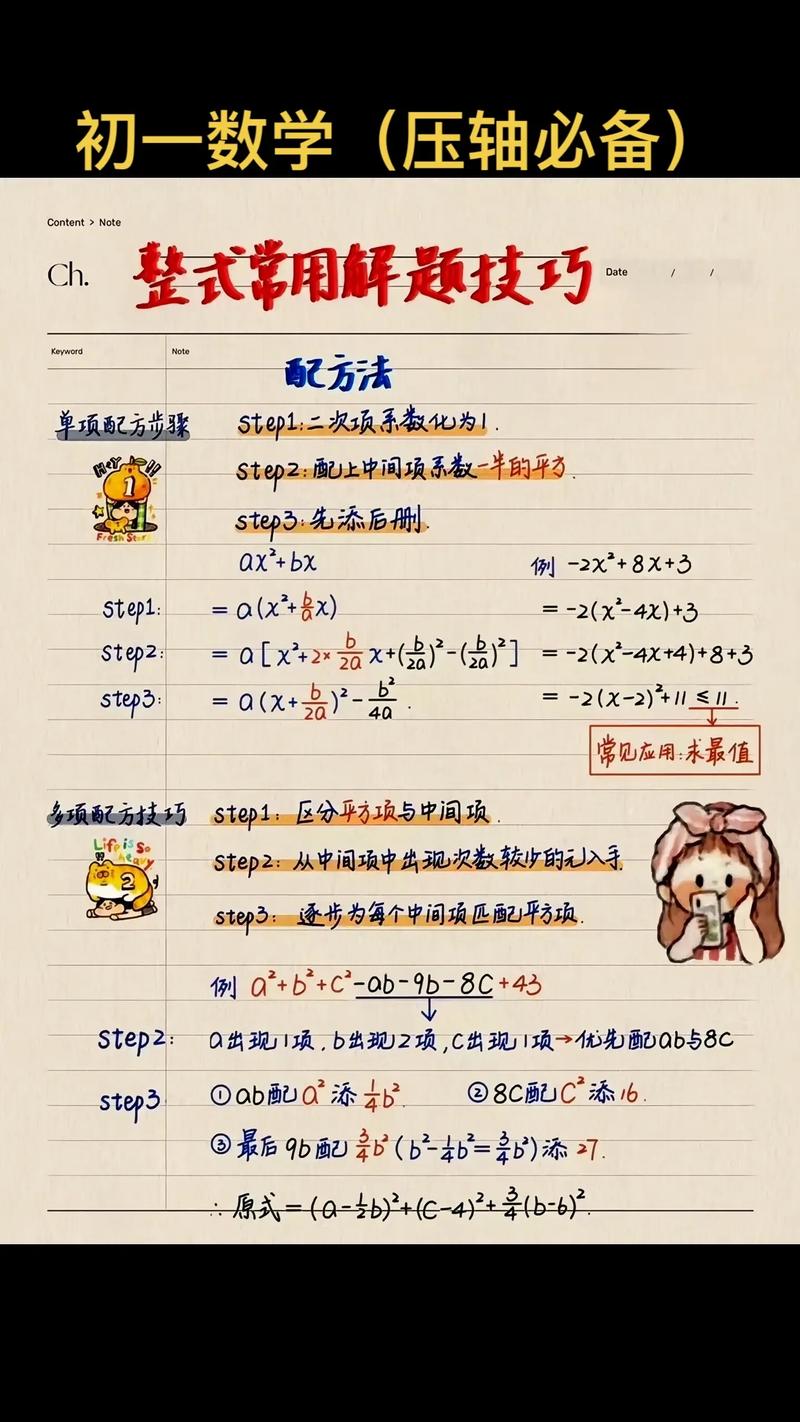 初一数学（压轴必备）
Content > Note
Ch. 整式常用解题技巧 Date / /
Keyword Note
配方法
单项配方步骤 step1:二次项系数化为1.
Hey !!
1
Fresh Start
step2:配上中间项系数一半的平方.
step3:先添后删.
ax²+bx 例 -2x²+8x+3
step1: = a(x²+b/a x) = -2(x²-4x)+3
step2: = a[x²+2×b/2a x+(b/2a)²-(b/2a)²] = -2(x²-4x+4)+8+3
step3: = a(x+b/2a)²-b²/4a. = -2(x-2)²+11 ≤11.
常见应用:求最值
多项配方技巧 step1: 区分平方项与中间项.
Life is so heavy
2
step2: 从中间项中出现次数较少的元入手.
step3: 逐步为每个中间项匹配平方项.
例 a²+b²+c²-ab-9b-8c+43
step2: a出现1项,b出现2项,c出现1项→优先配ab与8c
step3: ①ab配a²添1/4b². ②8c配c²添16.
③最后9b配3/4b²(b²-1/4b²=3/4b²)添27.
∴原式=(a-1/2b)²+(c-4)²+3/4(b-6)².